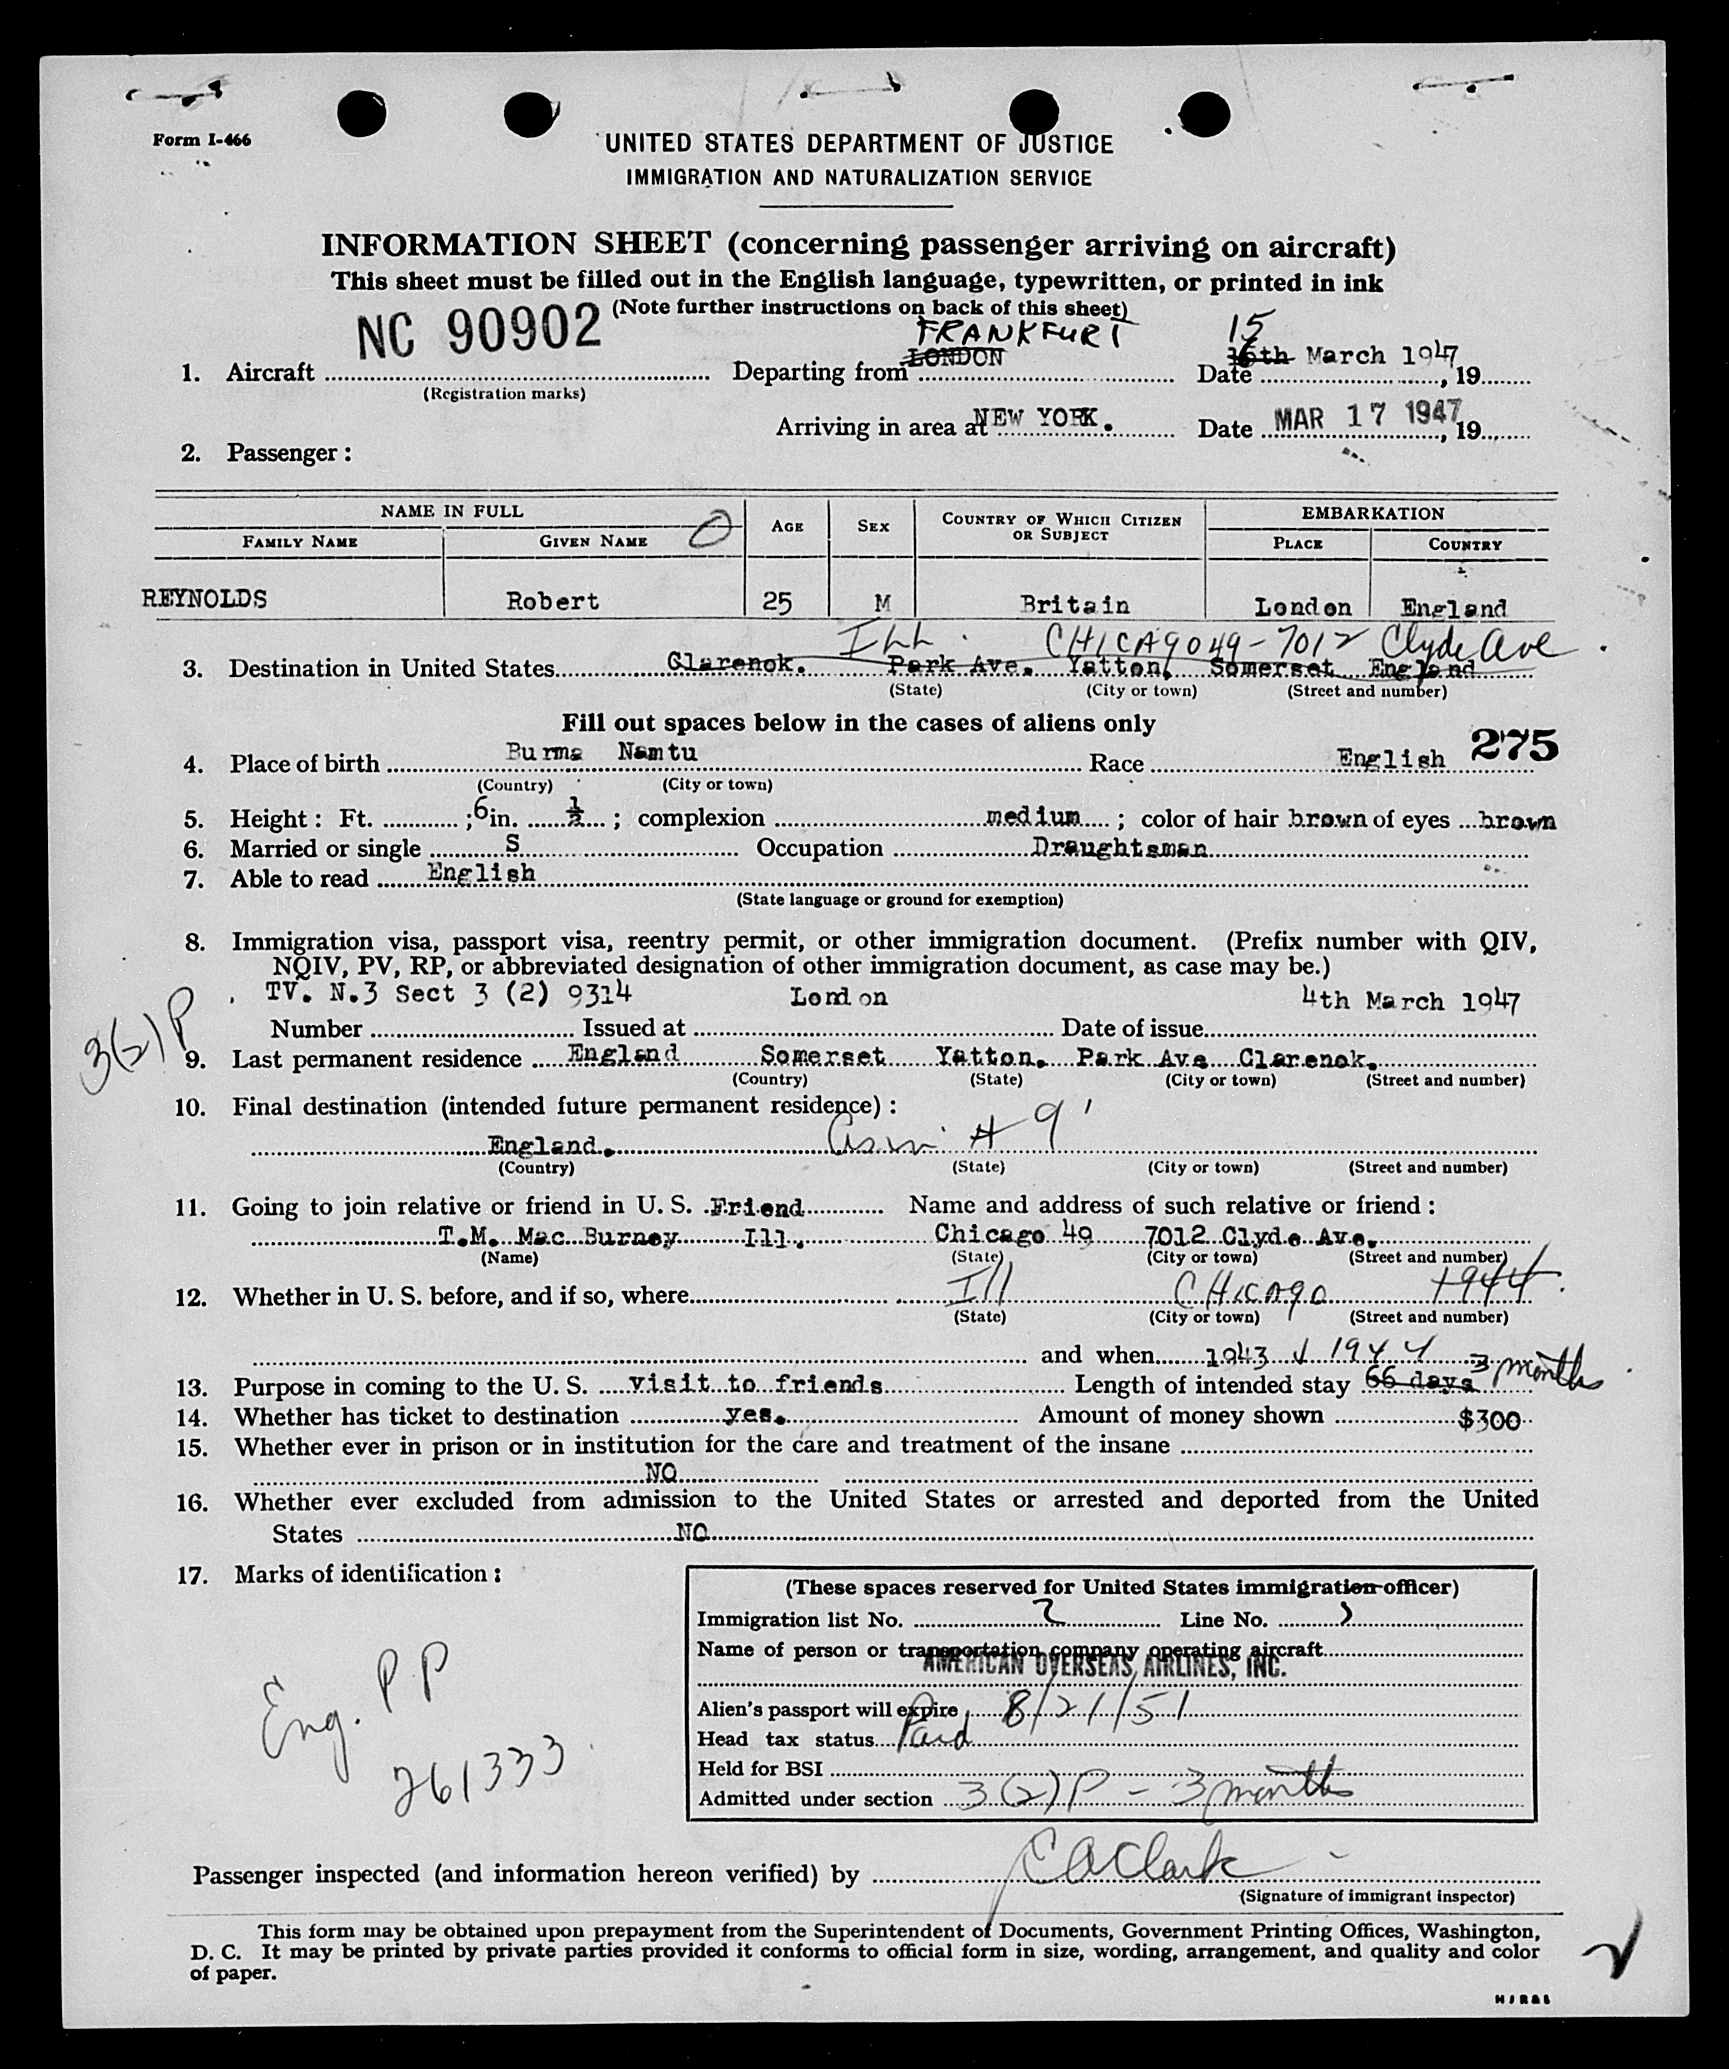 Form I-466
UNITED STATES DEPARTMENT OF JUSTICE
IMMIGRATION AND NATURALIZATION SERVICE
INFORMATION SHEET (concerning passenger arriving on aircraft)
This sheet must be filled out in the English language, typewritten, or printed in ink
(Note further instructions on back of this sheet)
NC 90902 FRANKFURT 15
1. Aircraft Departing from LONDON Date 16th March 1947, 19
(Registration marks)
Arriving in area at NEW YORK. Date MAR 17 1947, 19
2. Passenger :
NAME IN FULL AGE SEX COUNTRY OF WHICH CITIZEN OR SUBJECT EMBARKATION
FAMILY NAME GIVEN NAME PLACE COUNTRY
REYNOLDS Robert 25 M Britain London England
ILL. CHICAGO 49 - 7012 Clyde Ave.
3. Destination in United States Clarenok. Park Ave. Yatton, Somerset England
(State) (City or town) (Street and number)
Fill out spaces below in the cases of aliens only
275
4. Place of birth Burma Namtu Race English
(Country) (City or town)
5. Height : Ft. ; 6 in. 1/2 ; complexion medium ; color of hair brown of eyes brown
6. Married or single S Occupation Draughtsman
7. Able to read English
(State language or ground for exemption)
8. Immigration visa, passport visa, reentry permit, or other immigration document. (Prefix number with QIV,
NQIV, PV, RP, or abbreviated designation of other immigration document, as case may be.)
TV. N.3 Sect 3 (2) 9314 London 4th March 1947
Number Issued at Date of issue
3(2)P
9. Last permanent residence England Somerset Yatton. Park Ave Clarenok.
(Country) (State) (City or town) (Street and number)
10. Final destination (intended future permanent residence) :
England. # 9
(Country) (State) (City or town) (Street and number)
11. Going to join relative or friend in U. S. Friend Name and address of such relative or friend :
T.M. Mac Burney Ill. Chicago 49 7012 Clyde Ave.
(Name) (State) (City or town) (Street and number)
12. Whether in U. S. before, and if so, where Ill CHICAGO 1944
(State) (City or town) (Street and number)
and when 1943 1944
13. Purpose in coming to the U. S. visit to friends Length of intended stay 66 days 3 months
14. Whether has ticket to destination yes. Amount of money shown $300
15. Whether ever in prison or in institution for the care and treatment of the insane
NO
16. Whether ever excluded from admission to the United States or arrested and deported from the United
States NO
17. Marks of identification :
Eng. PP
261333
(These spaces reserved for United States immigration officer)
Immigration list No. 2 Line No. 3
Name of person or transportation company operating aircraft
AMERICAN OVERSEAS AIRLINES, INC.
Alien's passport will expire 8/21/51
Head tax status Paid
Held for BSI
Admitted under section 3(2)P - 3 months
Passenger inspected (and information hereon verified) by C A Clark
(Signature of immigrant inspector)
This form may be obtained upon prepayment from the Superintendent of Documents, Government Printing Offices, Washington,
D. C. It may be printed by private parties provided it conforms to official form in size, wording, arrangement, and quality and color
of paper.